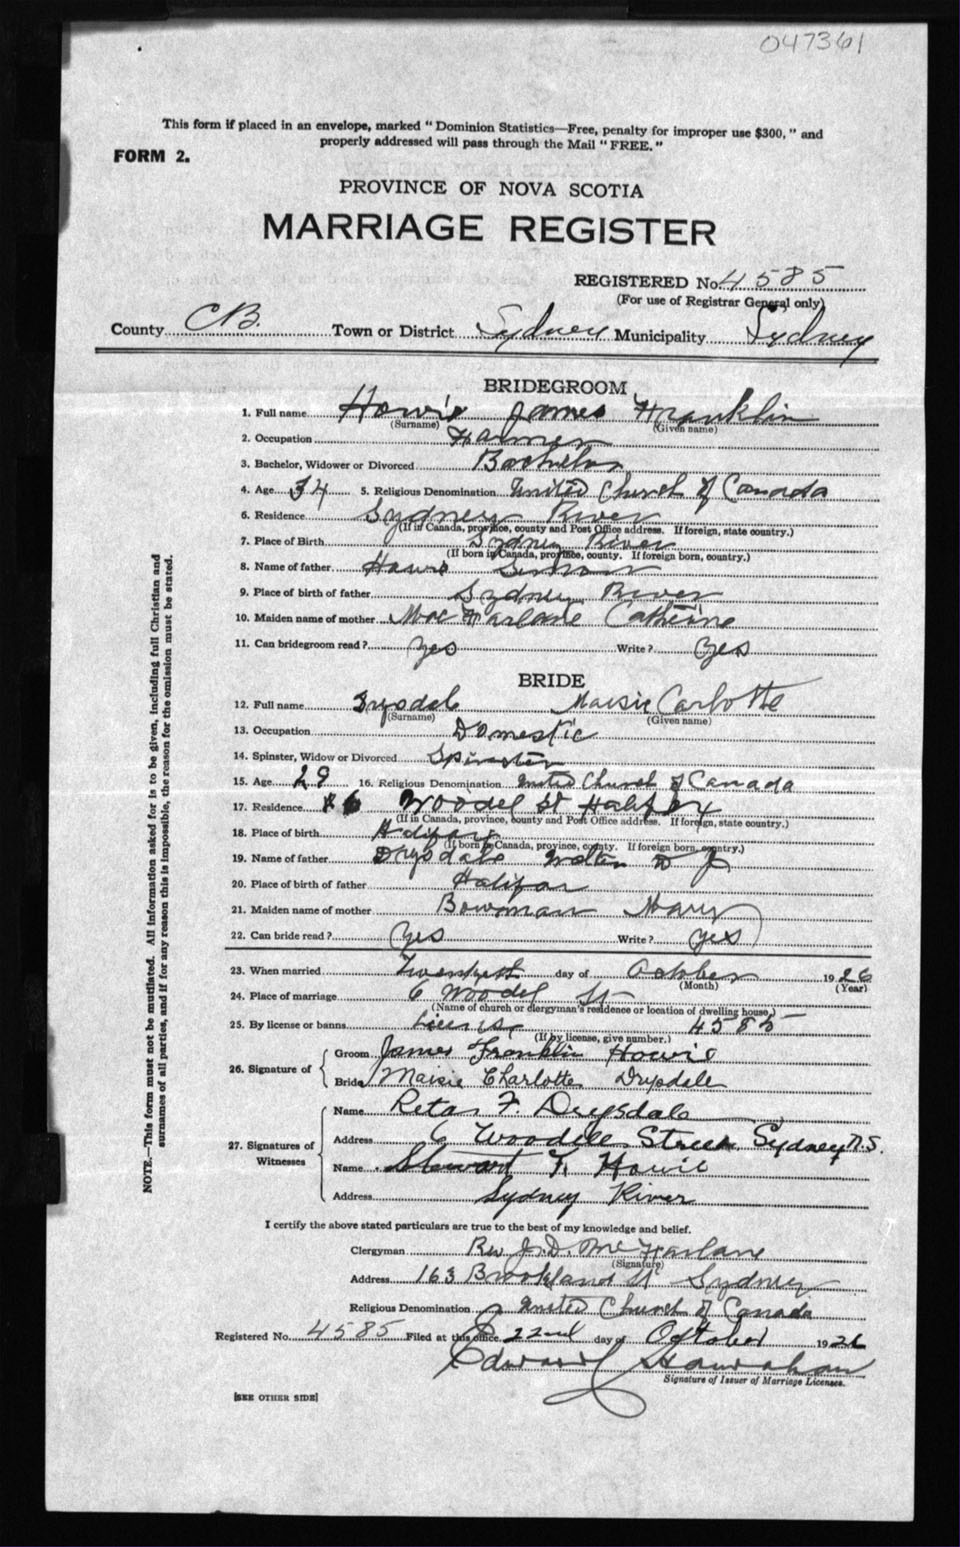 047361
This form if placed in an envelope, marked "Dominion Statistics—Free, penalty for improper use $300," and
properly addressed will pass through the Mail "FREE."
FORM 2.
PROVINCE OF NOVA SCOTIA
MARRIAGE REGISTER
REGISTERED No. 4585
(For use of Registrar General only)
County C.B. Town or District Sydney Municipality Sydney
BRIDEGROOM
1. Full name Howie James Franklin
(Surname) (Given name)
2. Occupation Farmer
3. Bachelor, Widower or Divorced Bachelor
4. Age 34 5. Religious Denomination United Church of Canada
6. Residence Sydney River
(If in Canada, province, county and Post Office address. If foreign, state country.)
7. Place of Birth Sydney River
(If born in Canada, province, county. If foreign born, country.)
8. Name of father Howie
9. Place of birth of father Sydney River
10. Maiden name of mother MacFarlane Catherine
11. Can bridegroom read? Yes Write? Yes
BRIDE
12. Full name Drysdale Maisie Carlotte
(Surname) (Given name)
13. Occupation Domestic
14. Spinster, Widow or Divorced Spinster
15. Age 29 16. Religious Denomination United Church of Canada
17. Residence 6 Woodel St Halifax
(If in Canada, province, county and Post Office address. If foreign, state country.)
18. Place of birth Halifax
(If born in Canada, province, county. If foreign born, country.)
19. Name of father Drysdale
20. Place of birth of father Halifax
21. Maiden name of mother Bowman Mary
22. Can bride read? Yes Write? Yes
23. When married Twentyeth day of October 1926
(Month) (Year)
24. Place of marriage 6 Woodel St
(Name of church or clergyman's residence or location of dwelling house.)
25. By license or banns License 4585
(If by license, give number.)
26. Signature of Groom James Franklin Howie
Bride Maisie Charlotte Drysdale
27. Signatures of Witnesses Name Retas F. Drysdale
Address 6 Woodill Street Sydney N.S.
Name Stewart F. Howie
Address Sydney River
I certify the above stated particulars are true to the best of my knowledge and belief.
Clergyman Rev J. D. McFarlane
(Signature)
Address 163 Brookland St Sydney
Religious Denomination United Church of Canada
Registered No. 4585 Filed at this office 22nd day of October 1926
Edward Hanrahan
Signature of Issuer of Marriage Licenses.
[SEE OTHER SIDE]
NOTE.—This form must not be mutilated. All information asked for is to be given, including full Christian and
surnames of all parties, and if for any reason this is impossible, the reason for the omission must be stated.